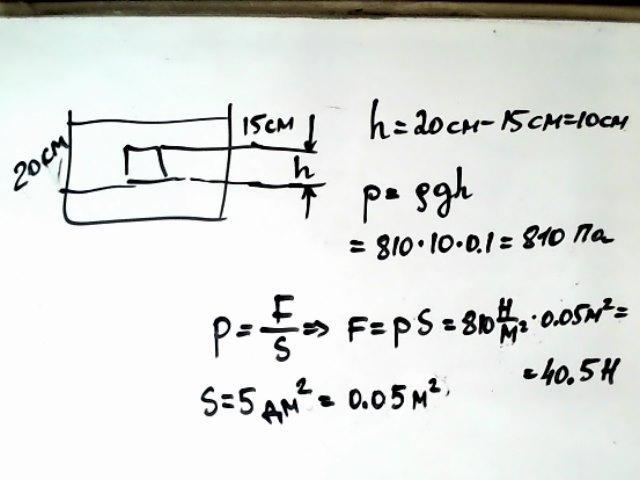 20см
15см
h
h = 20см - 15см = 10см
p = ρgh
= 810·10·0.1 = 810 Па
P = F/S ⇒ F = pS = 810 Н/м² · 0.05м² =
= 40.5Н
S = 5 дм² = 0.05 м²